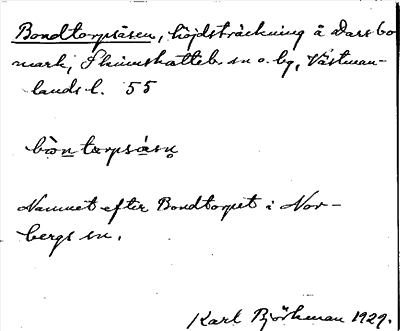 Bondtorpsåsen, höjdsträckning å Darsbo
mark; Skinnskatteb. sn o. by, Västman-
lands l. 55
bòn tærpså̀sn̥
Namnet efter Bondtorpet i Nor-
bergs sn.
Karl Björkman 1929.